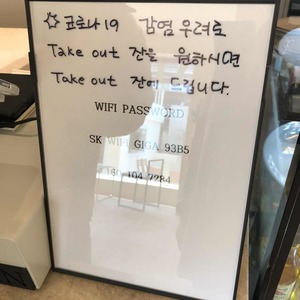 ☆ 코로나 19 감염 우려로
Take out 잔을 원하시면
Take out 잔에 드립니다.
WIFI PASSWORD
SK WIFI GIGA 93B5
160 104 7284